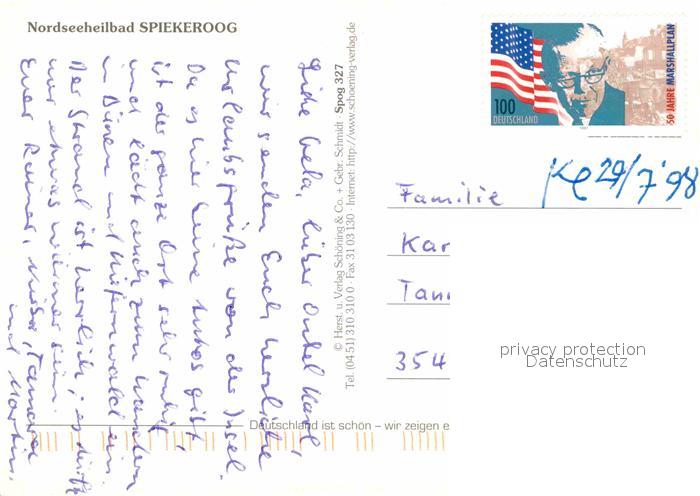 Nordseeheilbad SPIEKEROOG
Liebe Gela, lieber Onkel Karl,
wir senden Euch herzliche
Urlaubsgrüße von der Insel.
Da es hier keine Autos gibt,
ist der ganze Ort sehr ruhig
und lädt auch zum Wandern
in Dünen und Kiefernwald ein.
Der Strand ist herrlich, es dürfte
nur etwas wärmer sein.
Euer Rainer, Tamara
und Martin.
© Herst. u. Verlag Schöning & Co. + Gebr. Schmidt · Spog 327
Tel. (04 51) 310 310 0 · Fax 31 03 130 · Internet: http://www.schoening-verlag.de
Deutschland ist schön – wir zeigen e
100
DEUTSCHLAND
50 JAHRE MARSHALLPLAN
1997
29/7'98
Familie
Kar
Tan
354
privacy protection
Datenschutz